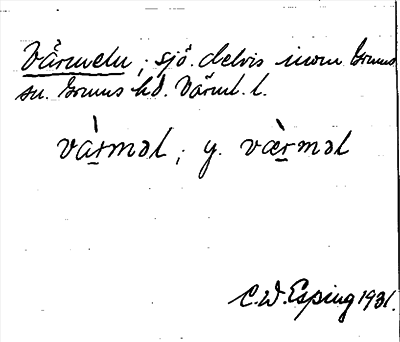 Värmeln, sjö. delvis inom Brunns
sn. Grums hd. Värml. l.
và̱rməl; y. væ̀ṟməl
C.W. Esping 1931.